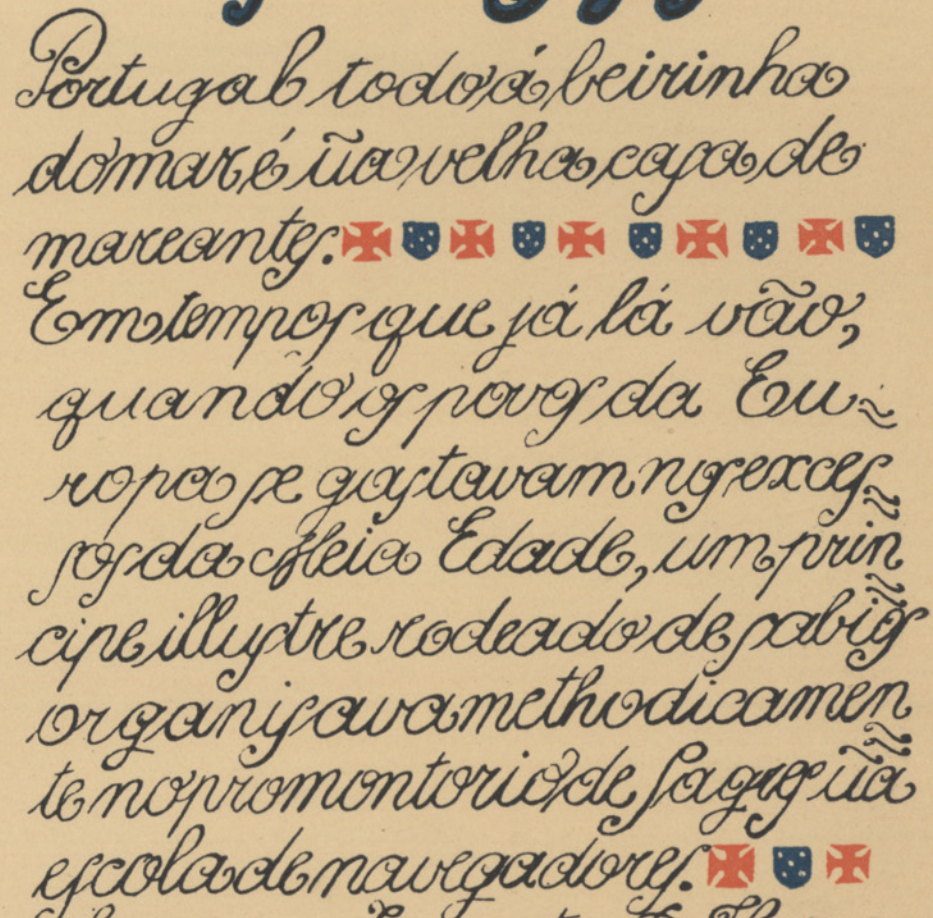 Portugal todo á beirinha
do mar é ũa velha casa de
mareantes.
Em tempos que já lá vão,
quando os povos da Eu-
ropa se gastavam nos exces-
sos da Meia Edade, um prin-
cipe illustre rodeado de sabios
organisava methodicamen-
te no promontorio de Sagres ũa
escola de navegadores.